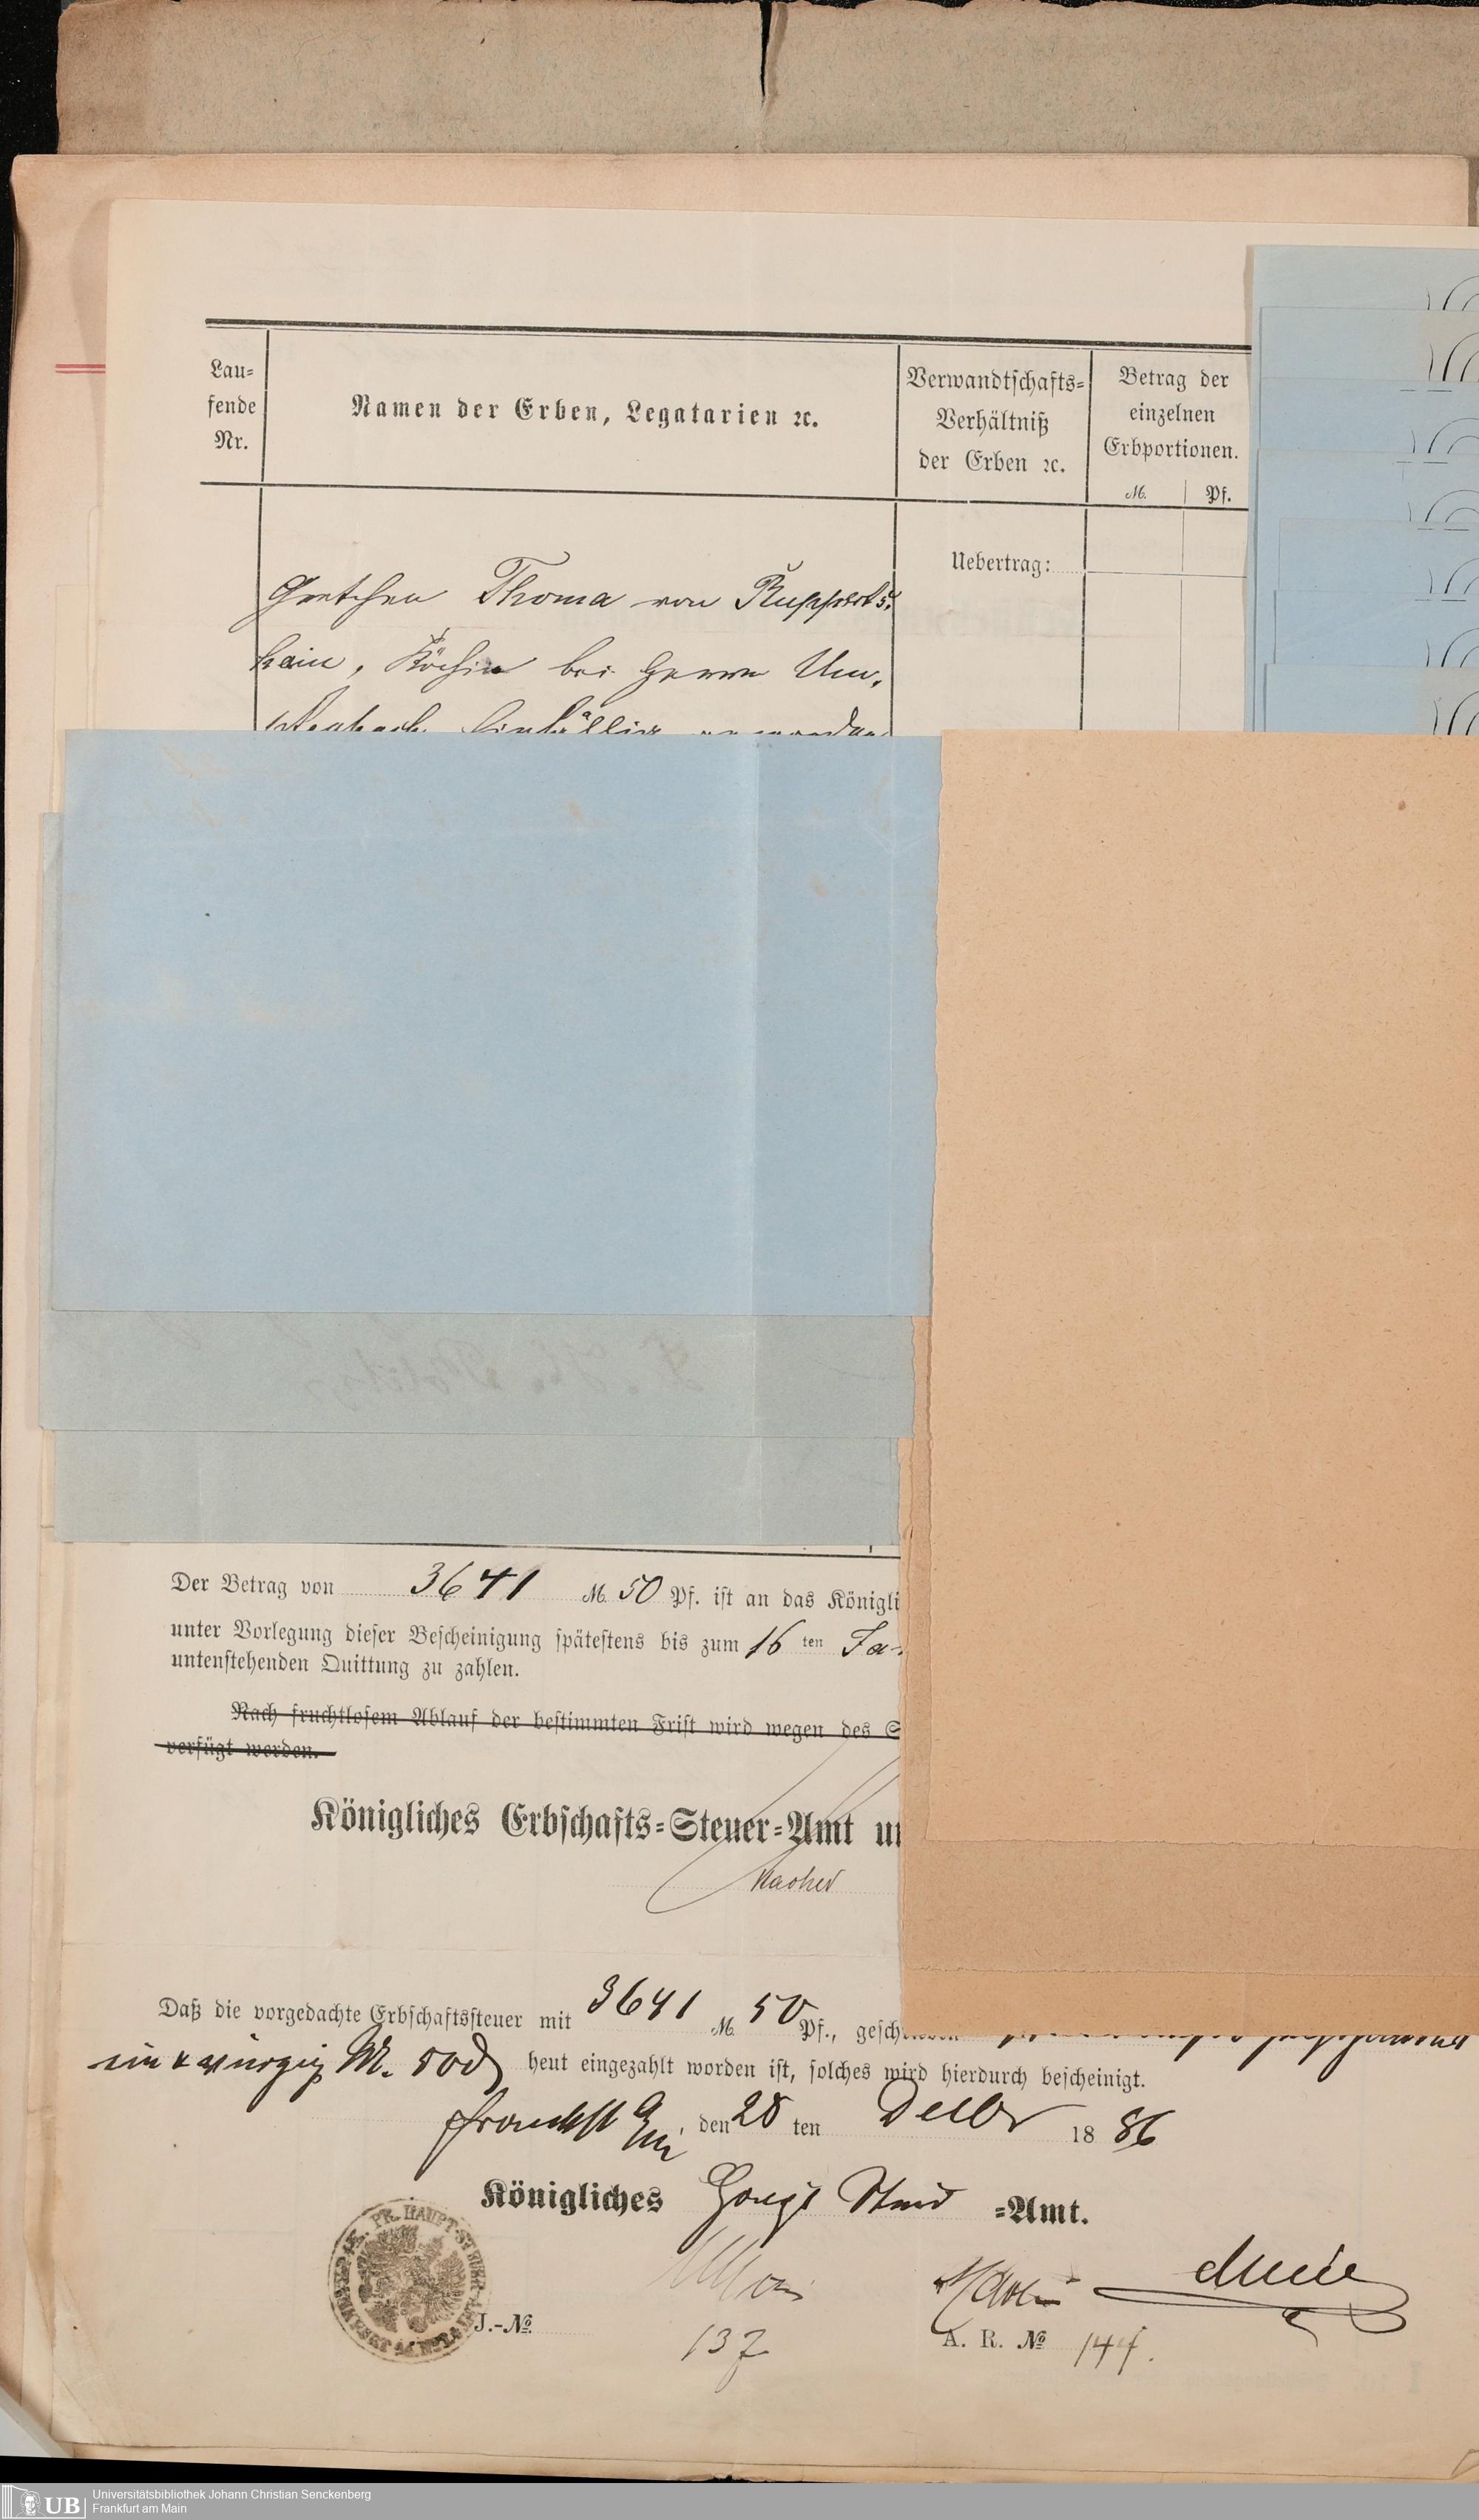 Lau-
fende
Nr.
Namen der Erben, Legatarien ꝛc.
Verwandtschafts-
Verhältniß
der Erben ꝛc.
Betrag der
einzelnen
Erbportionen.
M. Pf.
Uebertrag:
Gretchen Thoma von Rupperts-
hain, Köchin bei Herrn Um-
Der Betrag von 3641 M. 50 Pf. ist an das Königli
unter Vorlegung dieser Bescheinigung spätestens bis zum 16 ten Ja-
untenstehenden Quittung zu zahlen.
Nach fruchtlosem Ablauf der bestimmten Frist wird wegen des S
verfügt werden.
Königliches Erbschafts-Steuer-Amt u
Daß die vorgedachte Erbschaftssteuer mit 3641 M. 50 Pf., gesch
ein & vierzig M. 50 heut eingezahlt worden ist, solches wird hierdurch bescheinigt.
den 28 ten Decbr 18 86
Königliches Haupt Steuer -Amt.
PR. HAUPT-STEUER-AMT
J.-№ 137
A. R. № 144.
UB
Universitätsbibliothek Johann Christian Senckenberg
Frankfurt am Main